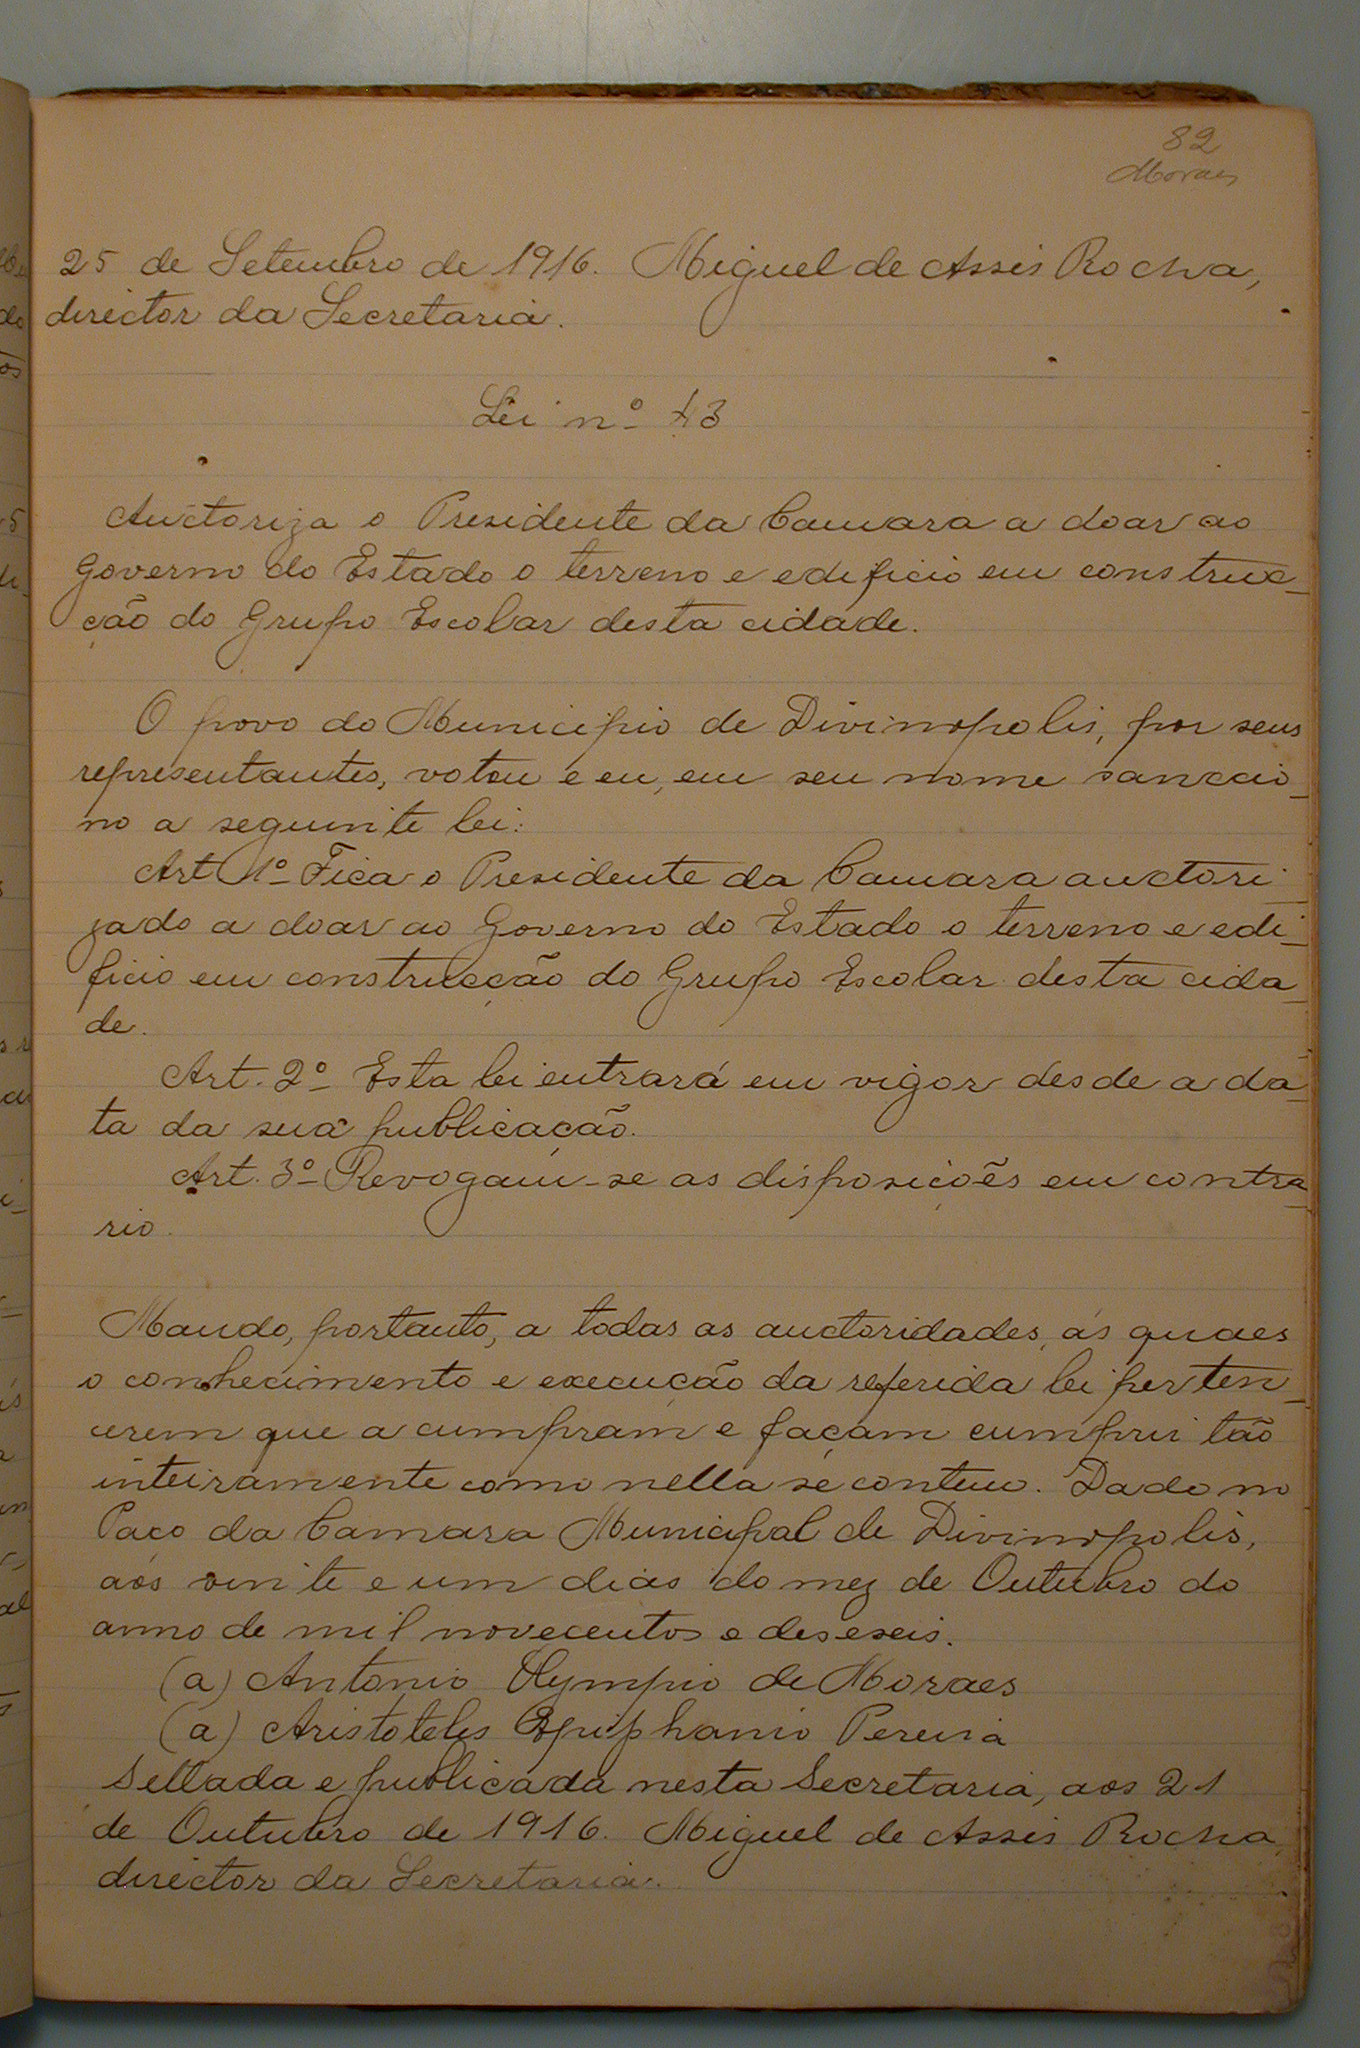 82
Moraes
25 de Setembro de 1916. Miguel de Assis Rocha,
director da Secretaria.
Lei nº 43
Auctoriza o Presidente da Camara a doar ao
Governo do Estado o terreno e edificio em construc_
ção do Grupo Escolar desta cidade.
O povo do Municipio de Divinopolis, por seus
representantes, votou e eu, em seu nome sanccio_
no a seguinte lei:
Art 1º Fica o Presidente da Camara auctori
zado a doar ao Governo do Estado o terreno e edi_
ficio em construcção do Grupo Escolar desta cida_
de.
Art. 2º Esta lei entrará em vigor desde a da_
ta da sua publicação.
Art. 3º Revogam-se as disposições em contra_
rio.
Mando, portanto, a todas as auctoridades, ás quaes
o conhecimento e execução da referida lei perten_
cerem que a cumpram e façam cumprir tão
inteiramente como nella se contem. Dado no
Paço da Camara Municipal de Divinopolis,
aos vinte e um dias do mez de Outubro do
anno de mil novecentos e deseseis.
(a) Antonio Olympio de Moraes
(a) Aristoteles Epiphanio Pereira
Sellada e publicada nesta Secretaria, aos 21
de Outubro de 1916. Miguel de Assis Rocha,
director da Secretaria.